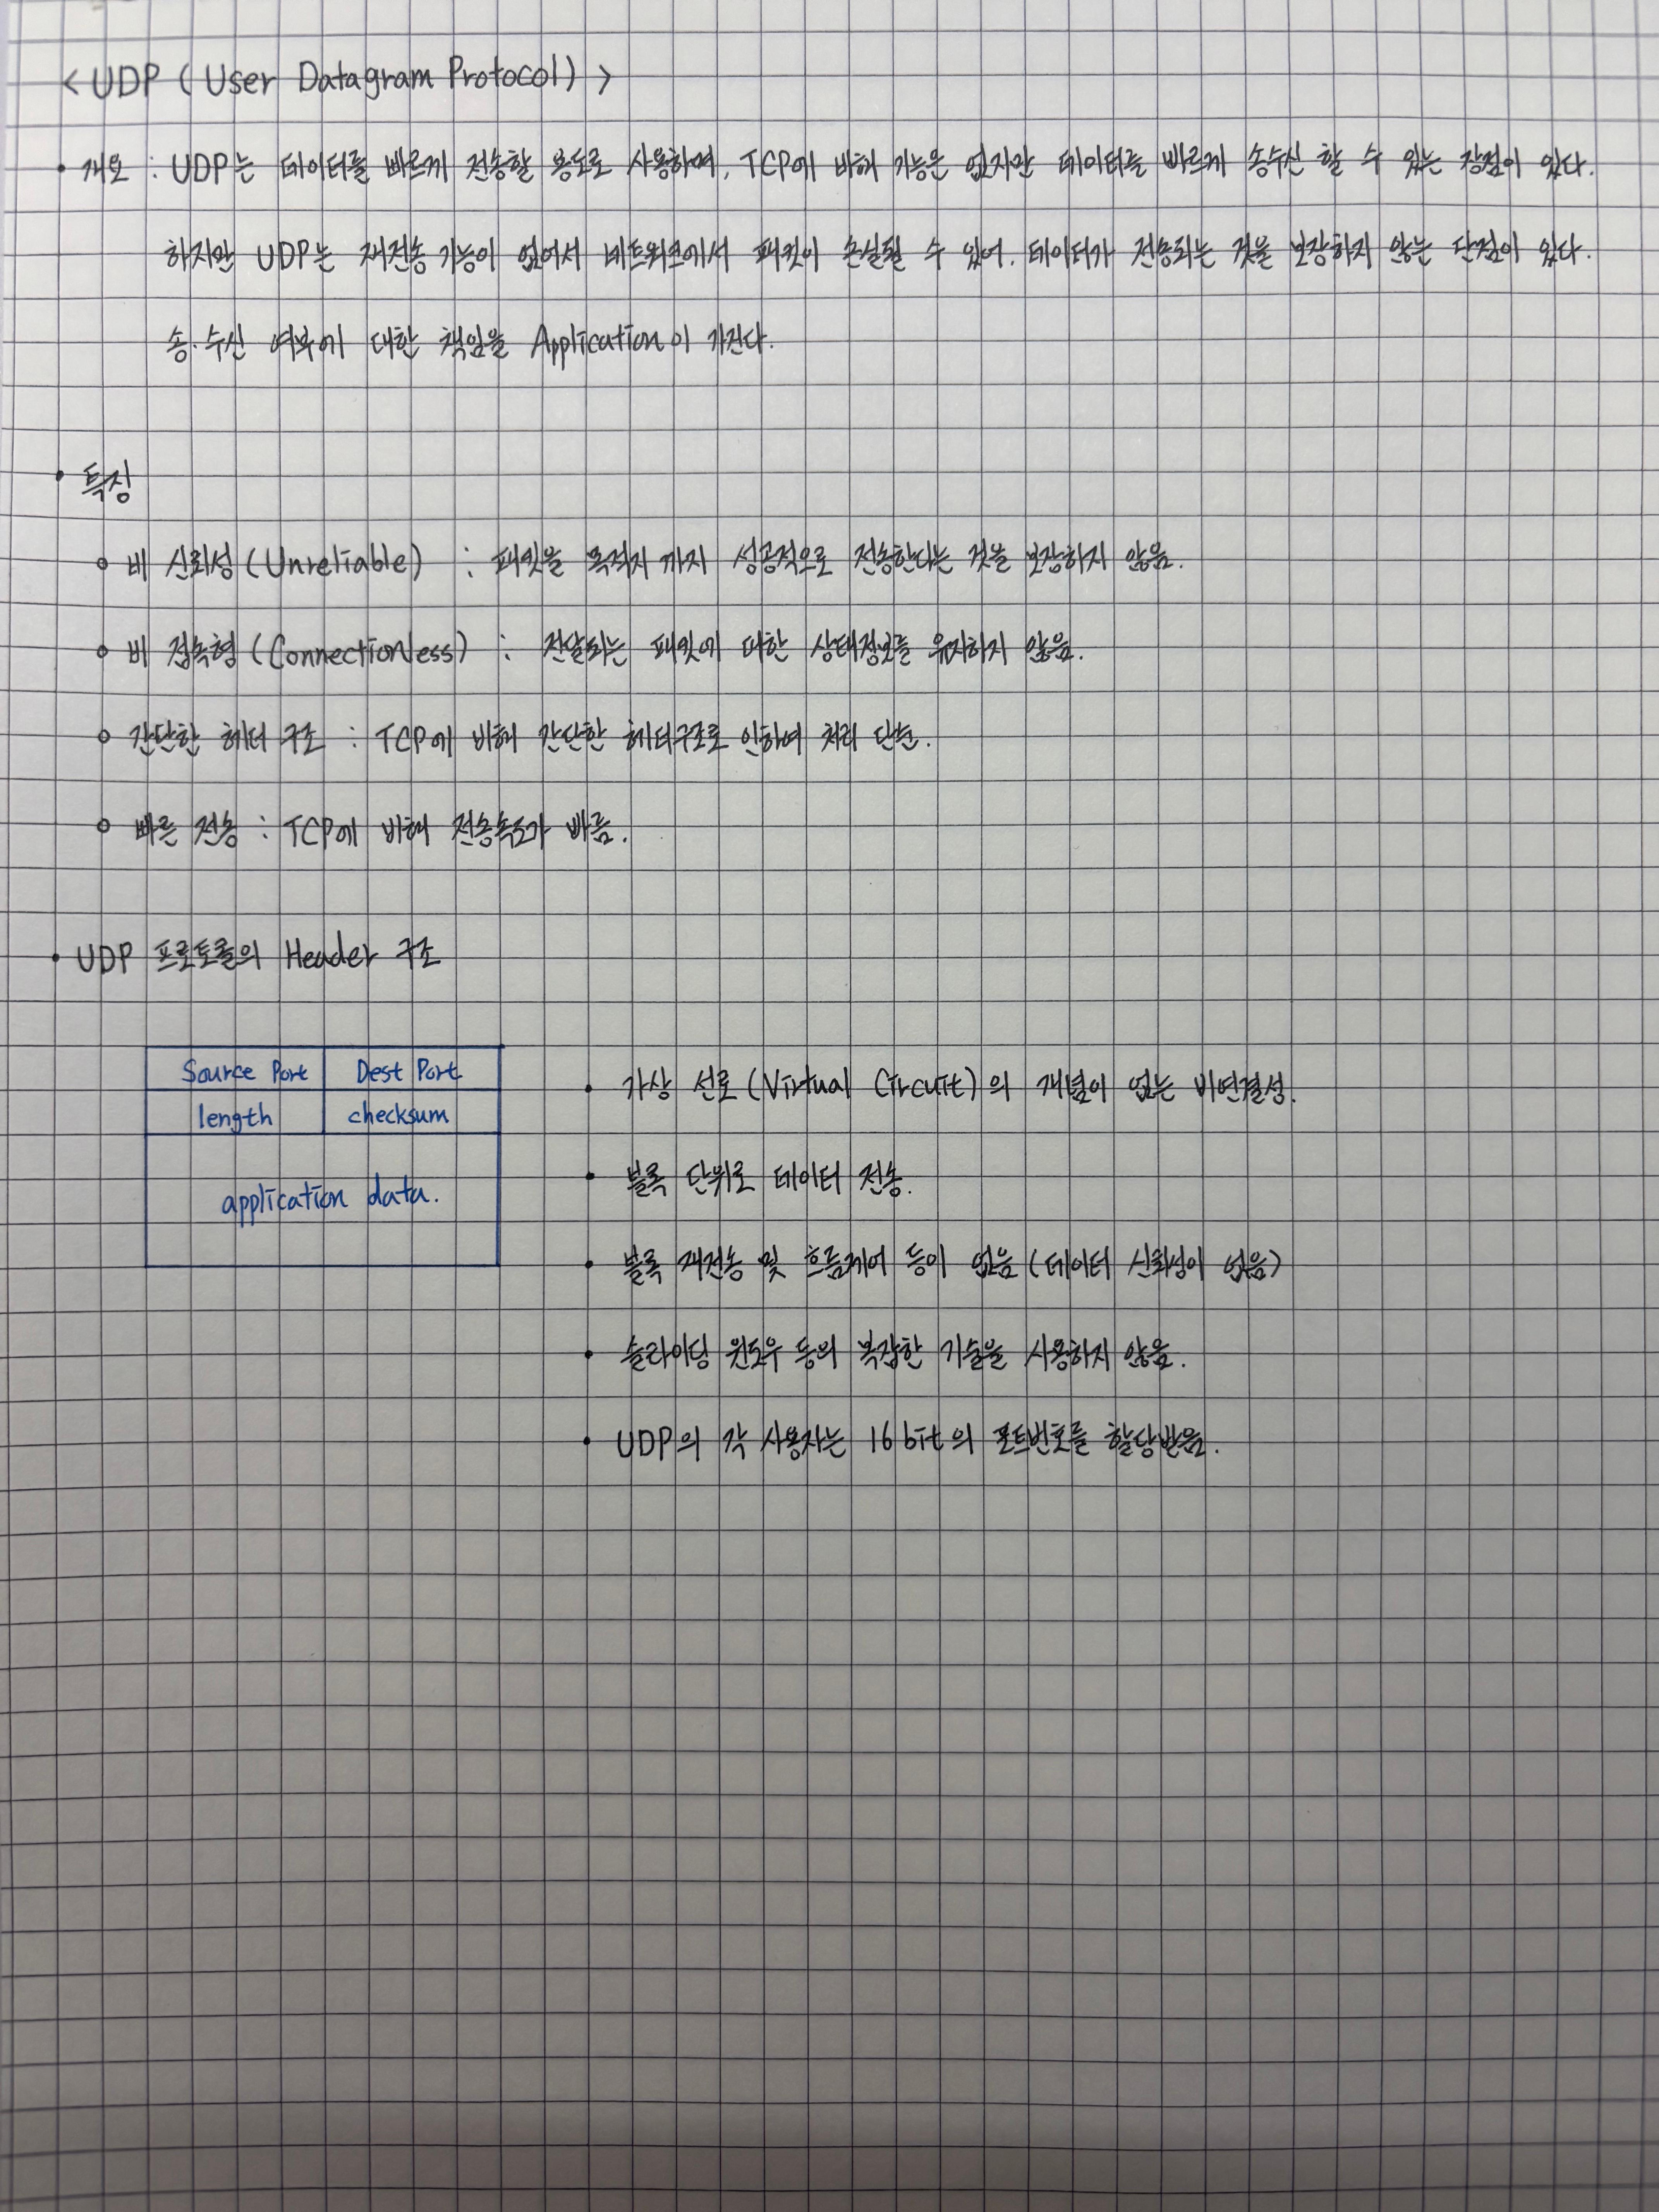 <UDP (User Datagram Protocol)>
• 개요 : UDP는 데이터를 빠르게 전송할 용도로 사용하며, TCP에 비해 기능은 없지만 데이터를 빠르게 송수신 할 수 있는 장점이 있다.
하지만 UDP는 재전송 기능이 없어서 네트워크에서 패킷이 손실될 수 있어, 데이터가 전송되는 것을 보장하지 않는 단점이 있다.
송·수신 여부에 대한 책임을 Application이 가진다.
• 특징
o 비 신뢰성(Unreliable) : 패킷을 목적지 까지 성공적으로 전송한다는 것을 보장하지 않음.
o 비 접속형(Connectionless) : 전달되는 패킷에 대한 상태정보를 유지하지 않음.
o 간단한 헤더 구조 : TCP에 비해 간단한 헤더구조로 인하여 처리 단순.
o 빠른 전송 : TCP에 비해 전송속도가 빠름.
• UDP 프로토콜의 Header 구조
Source Port Dest Port
length checksum
application data.
• 가상 선로(Virtual Circuit)의 개념이 없는 비연결성.
• 블록 단위로 데이터 전송.
• 블록 재전송 및 흐름제어 등이 없음(데이터 신뢰성이 없음)
• 슬라이딩 윈도우 등의 복잡한 기술을 사용하지 않음.
• UDP의 각 사용자는 16bit의 포트번호를 할당받음.